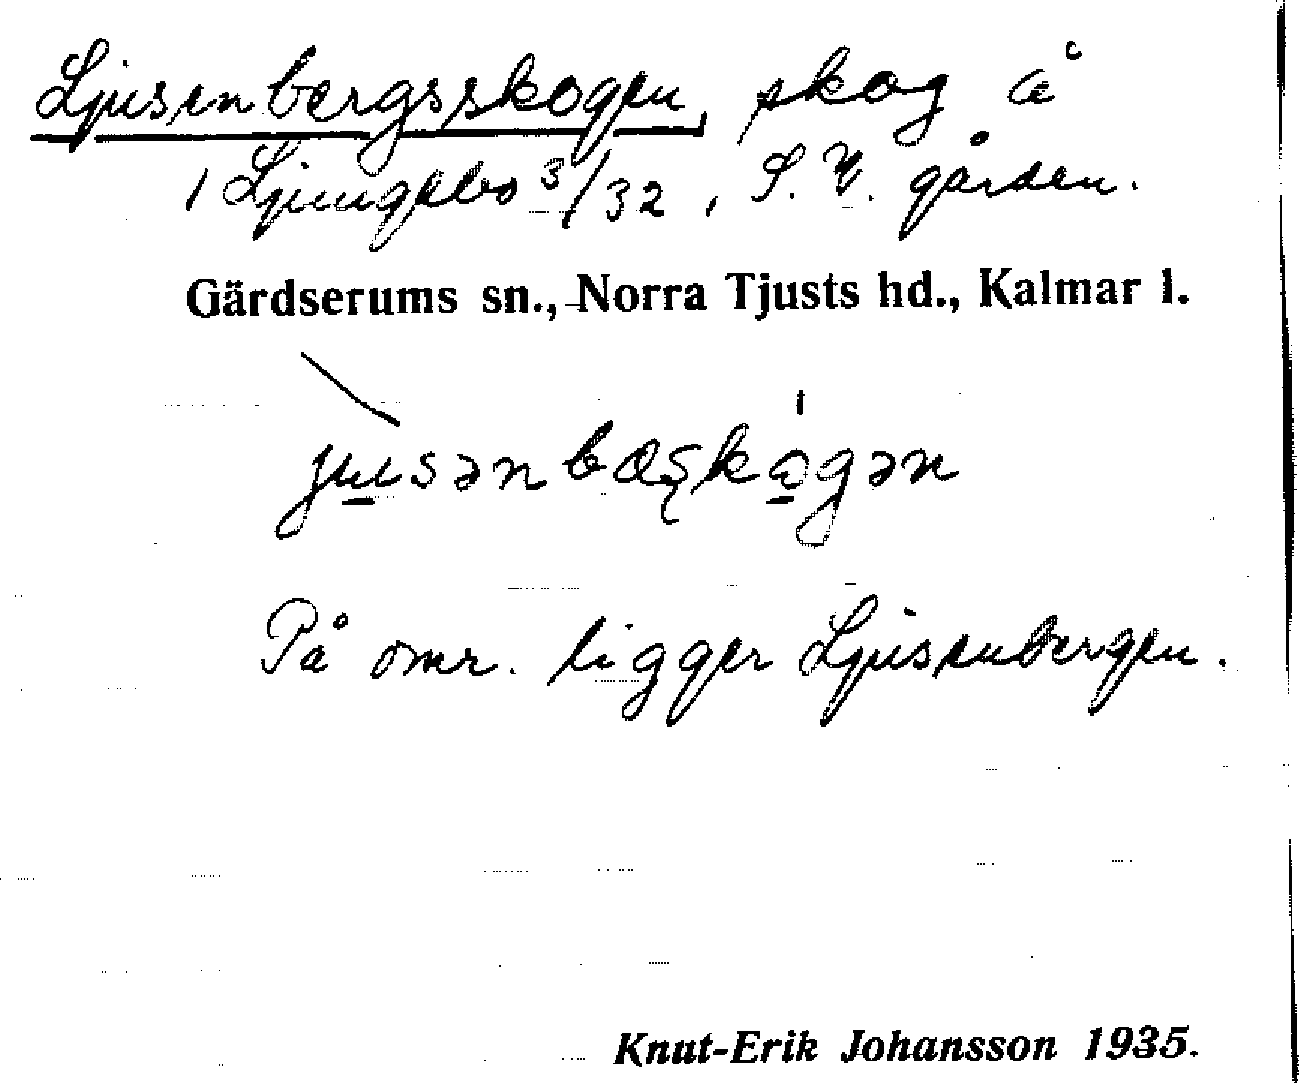 Ljusenbergsskogen, skog å
1 Ljungsbo 3/32, S. Y. gården.
Gärdserums sn., Norra Tjusts hd., Kalmar l.
jusənbæskågən
På omr. ligger Ljusenbergen.
Knut-Erik Johansson 1935.